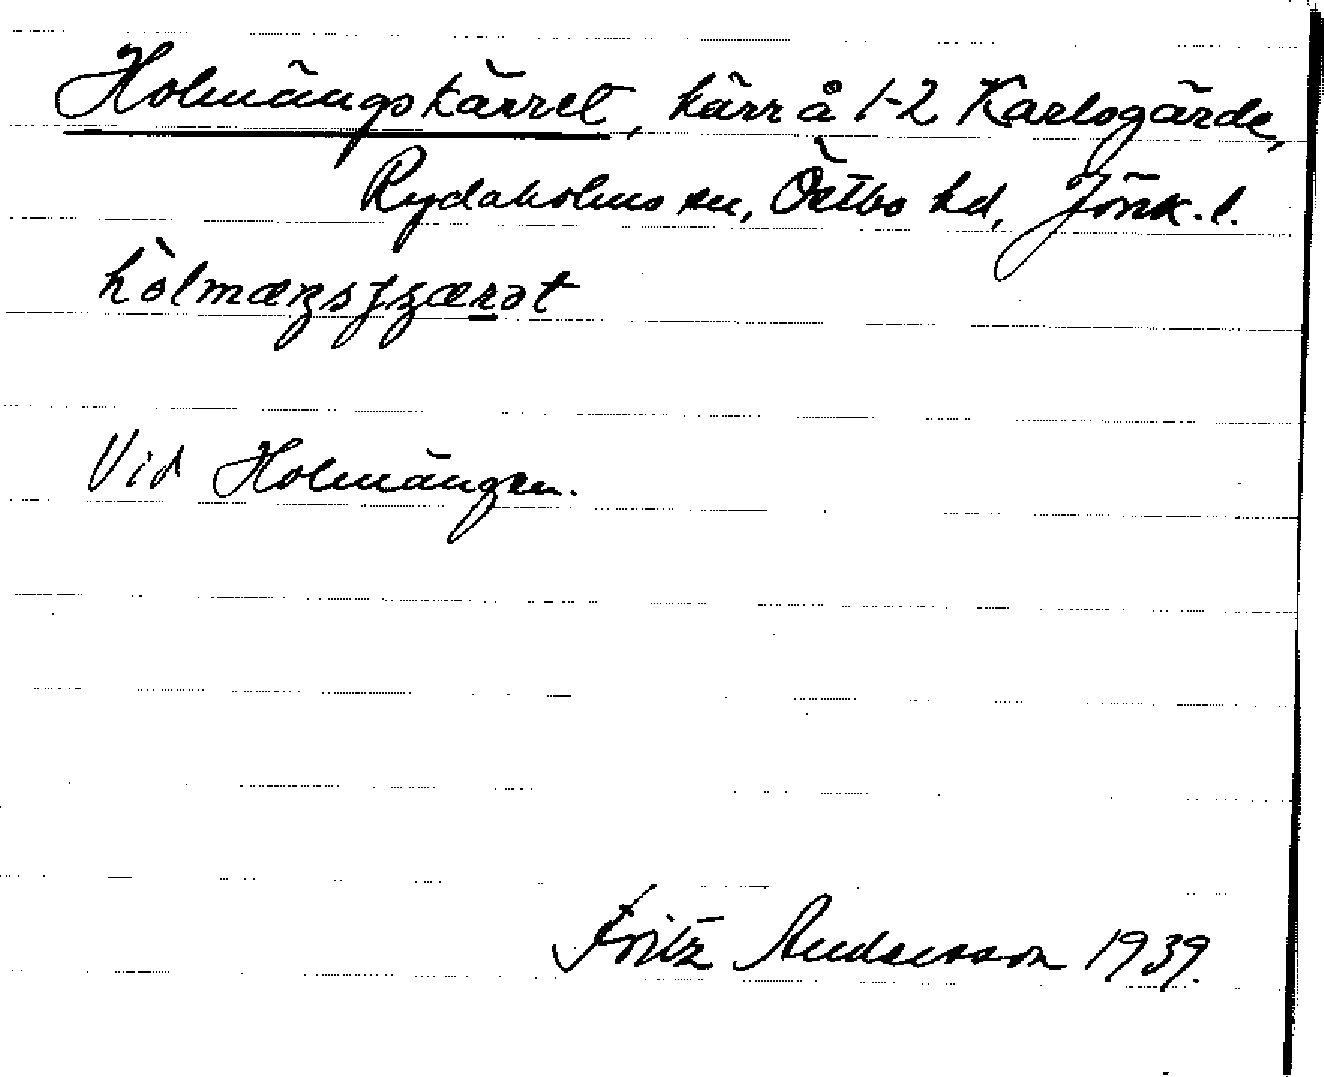 Holmängskärret, kärr å 1-2 Karlsgärde,
Rydaholms sn, Östbo hd, Jönk. l.
Vid Holmängen.
Fritz Andersson 1939.